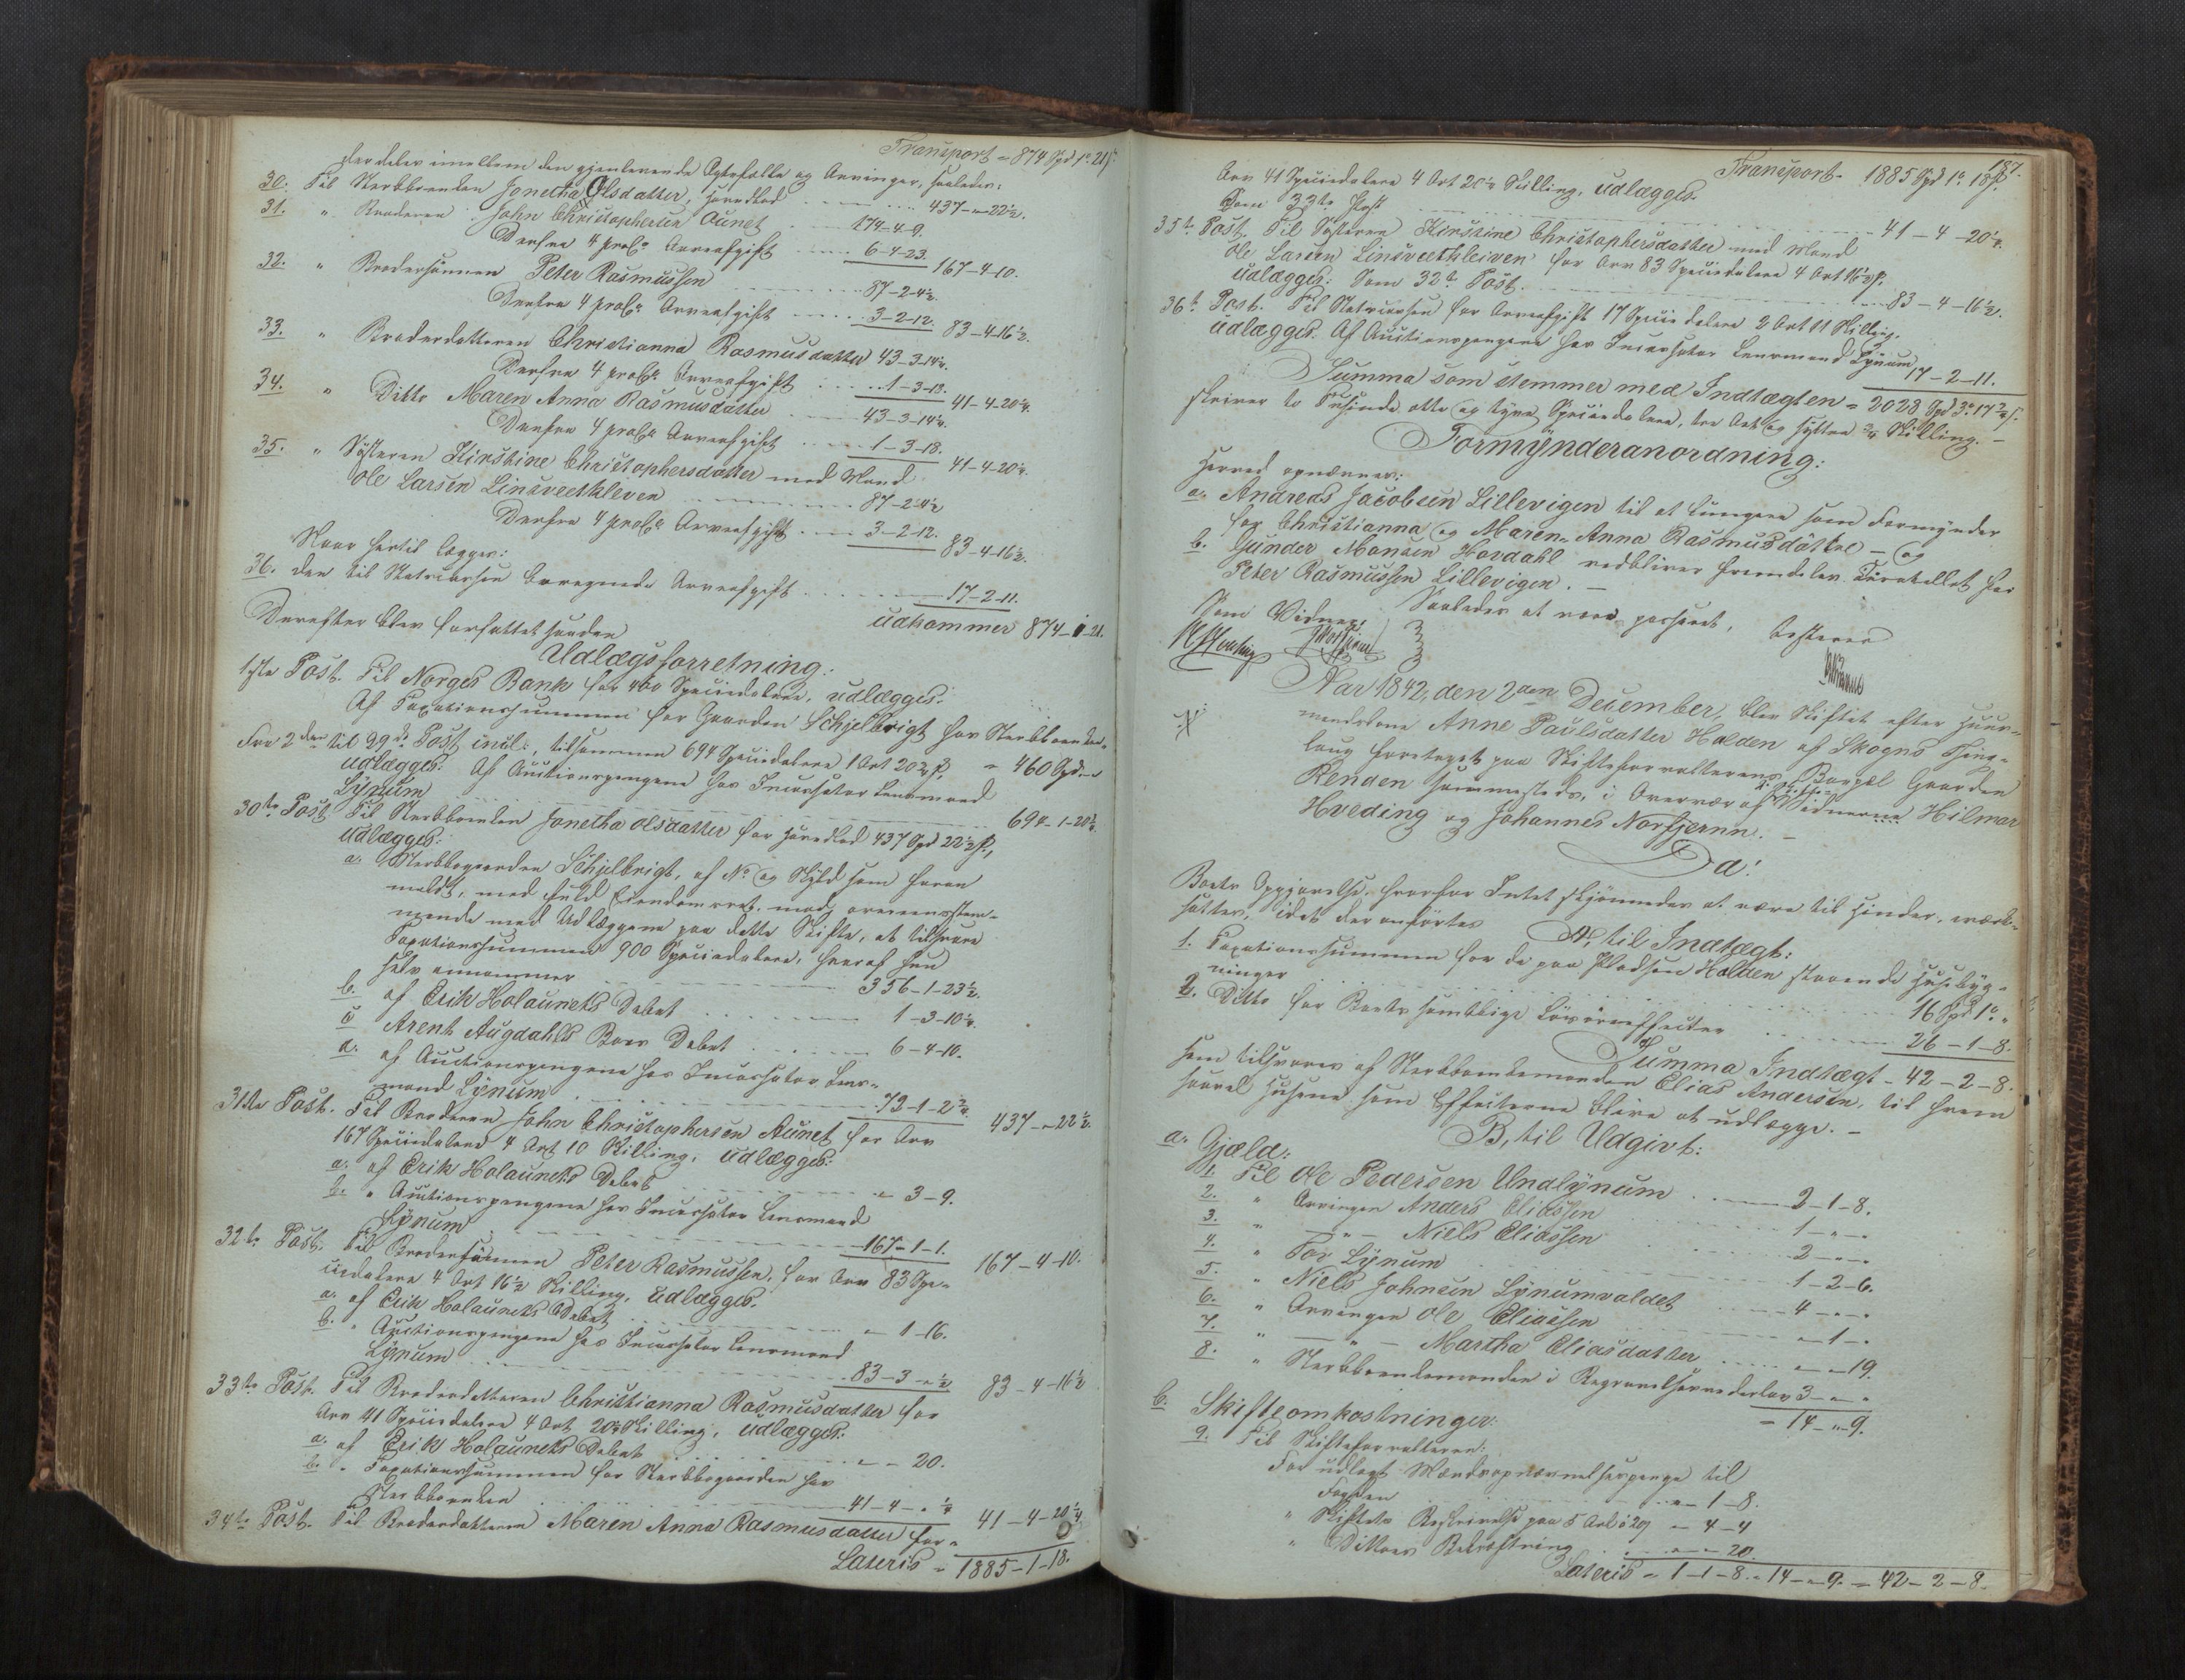 Transport = 874 Spd 1 o. 21 s.
der deles imellem den gjenlevende Ægtefælle og Arvinger, saaledes:
30. Til Sterbboenken Jonetha Olsdatter, Hovedlod 437 - „ - 22½.
31. " Broderen John Christophersen Aunet 174-4-9.
Derfra 4 proCt Arveafgift 6-4-23. 167-4-10.
32. " Brodersønnen Peter Rasmussen 87-2-4½.
Derfra 4 proCt Arveafgift 3-2-12. 83-4-16½.
33. " Broderdatteren Christianna Rasmusdatter 43-3-14¼.
Derfra 4 proCt Arveafgift 1-3-18. 41-4-20¼.
34. " Ditto Maren Anna Rasmusdatter 43-3-14¼.
Derfra 4 proCt Arveafgift 1-3-18. 41-4-20¼.
35. " Søsteren Kirstine Christophersdatter med Mand
Ole Larsen Linsveetkleven 87-2-4½
Derfra 4 proCt Arveafgift 3-2-12. 83-4-16½.
Naar hertil lægges:
36. den til Statscassen beregnede Arveafgift 17-2-11.
udkommer 874-1-21.
Derefter blev forfattet saadan
Udlægsforretning:
1ste Post. Til Norges Bank for 460 Speciedalere, udlægges:
Af Taxationssummen for Gaarden Schjelbrigt hos Sterbboenken = 460 Spd. „ „
For 2den til 29de Post incl:, tilsammen 694 Speciedalere 1 Ort 20¾ s.,
udlægges: Af Auctionspengene hos Incassator Lensmand
Lÿnum 694-1-20¾.
30te Post Til Sterbboenken Jonetha Olsdatter for Hovedlod 437 Spd 22½ s.,
udlægges:
a. Sterbbogaarden Schjelbrigt, af No og Skÿld som foran
meldt, med fuld Eiendomsret, mod, overeensstem-
mende med Udlæggene paa dette Skifte, at tilsvare
Taxationssummen 900 Speciedalere, hvoraf hun
selv annammer 356-1-23½.
b. af Erik Holaunets Debet 1-3-10¼.
c. Arent Augdahls Boes Debet 6-4-10.
d. af Auctionspengene hos Incassator Lens-
mand Lÿnum 72-1-2¾. 437-„-22½.
31te Post. Til Broderen John Christophersen Aunet for Arv
167 Speciedalere 4 Ort 10 Skilling, udlægges:
a. af Erik Holaunets Debet „ 3-9.
b. " Auctionspengene hos Incassator Lensmand
Lÿnum 167-1-1. 167-4-10.
32te Post. Til Brodersønnen Peter Rasmussen, for Arv 83 Spe-
ciedalere 4 Ort 16½ Skilling, udlægges:
a. af Erik Holaunets Debet „ 1-16.
b. " Auctionspengene hos Incassator Lensmand
Lÿnum 83-3-„½ 83-4-16½
33te Post. Til Broderdatteren Christianna Rasmusdatter for
Arv 41 Speciedalere 4 Ort 20¼ Skilling, udlægges:
a. af Erik Holaunets Debet „ „ 20.
b. " Taxationssummen for Sterbbogaarden hos
Sterbboenken 41-4-„¼ 41-4-20¼
34te Post. Til Broderdatteren Maren Anna Rasmusdatter for
Lateris = 1885-1-18.
187.
Transport - 1885 Spd 1 o. 18 s.
Arv 41 Speciedalere 4 Ort 20¼ Skilling, udlægges:
Som 33te Post 41-4-20¼.
35te Post. Til Søsteren Kirstine Christophersdatter med Mand
Ole Larsen Linsveetkleiven for Arv 83 Speciedalere 4 Ort 16½ s.
udlægges: Som 32te Post. 83-4-16½.
36te Post. Til Statscassen for Arveafgift 17 Speciedalere 2 Ort 11 Skilling,
udlægges: Af Auctionspengene hos Incassator Lensmand Lÿnum 17-2-11.
Summa som stemmer med Indtægten = 2028 Spd 3 o. 17¾ s.
skriver to Tusinde otte og tyve Speciedalere, tre Ort og sytten ¾ Skilling. -
Formÿnderanordning:
Herved opnævnes:
a. Andreas Jacobsen Lillevigen til at fungere som Formÿnder
for Christianna og Maren Anna Rasmusdøttre - og
b. Gunder Monsen Hovdahl vedbliver fremdeles Curatellet for
Peter Rasmussen Lillevigen. -
Saaledes at være passeret, testerer
Som Vidner:
Aar 1842, den 2den December, blev Skiftet efter Huus-
mandskone Anne Paulsdatter Holden af Skogns Thing-
laug foretaget paa Skifteforvalterens Bopæl Gaarden
Renden sammesteds, i Overvær af Vidnerne Hilmar
Hveding og Johannes Norbjernn. -
Da:
Boets Opgjørelse, hvorfor Intet skjønnedes at være til Hinder, iværk-
sattes, idet der anførtes
A, til Indtægt:
1. Taxationssummen for de paa Pladsen Holden staaende Husebÿg-
ninger 16 Spd 1 o. „
2. Ditto for Boets samtlige Løsøreeffecter 26-1-8.
Summa Indtægt - 42-2-8.
som tilsvares af Sterbboenkemanden Elias Andersen, til hvem
saavel Husene som Effecterne blive at udlægge. -
B, til Udgivt:
a. Gjæld:
1. Til Ole Pedersen Undlÿnum 2-1-8.
2. " Arvingen Anders Eliassen 1-„-„
3. " - „ - Niels Eliassen 2-„-„
4. " Tor Lÿnum 1-2-6.
5. " Niels Johnsen Lÿnumvaldet 4-„-„
6. " Arvingen Ole Eliassen „-1-„
7. " - „ - Martha Eliasdatter „-„-19.
8. " Sterbboenkemanden i Begravelsesvederlag 3-„-„
= 14-„-9.
b. Skifteomkostninger:
9. Til Skifteforvalteren:
For udlagt Mændsopnævnelsespenge til
Fogden „-1-8.
" Skiftets Beskrivelse paa 5 Ark à 20 s „-4-4
" Dittoes Bekræftning „-„-20.
Lateris = 1-1-8. = 14-„-9. = 42-2-8.